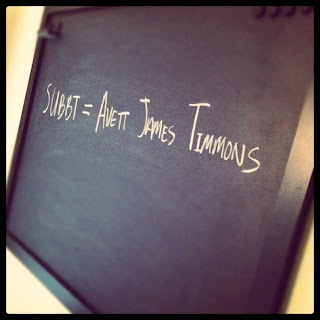 SUBBT = AVETT JAMES TIMMONS